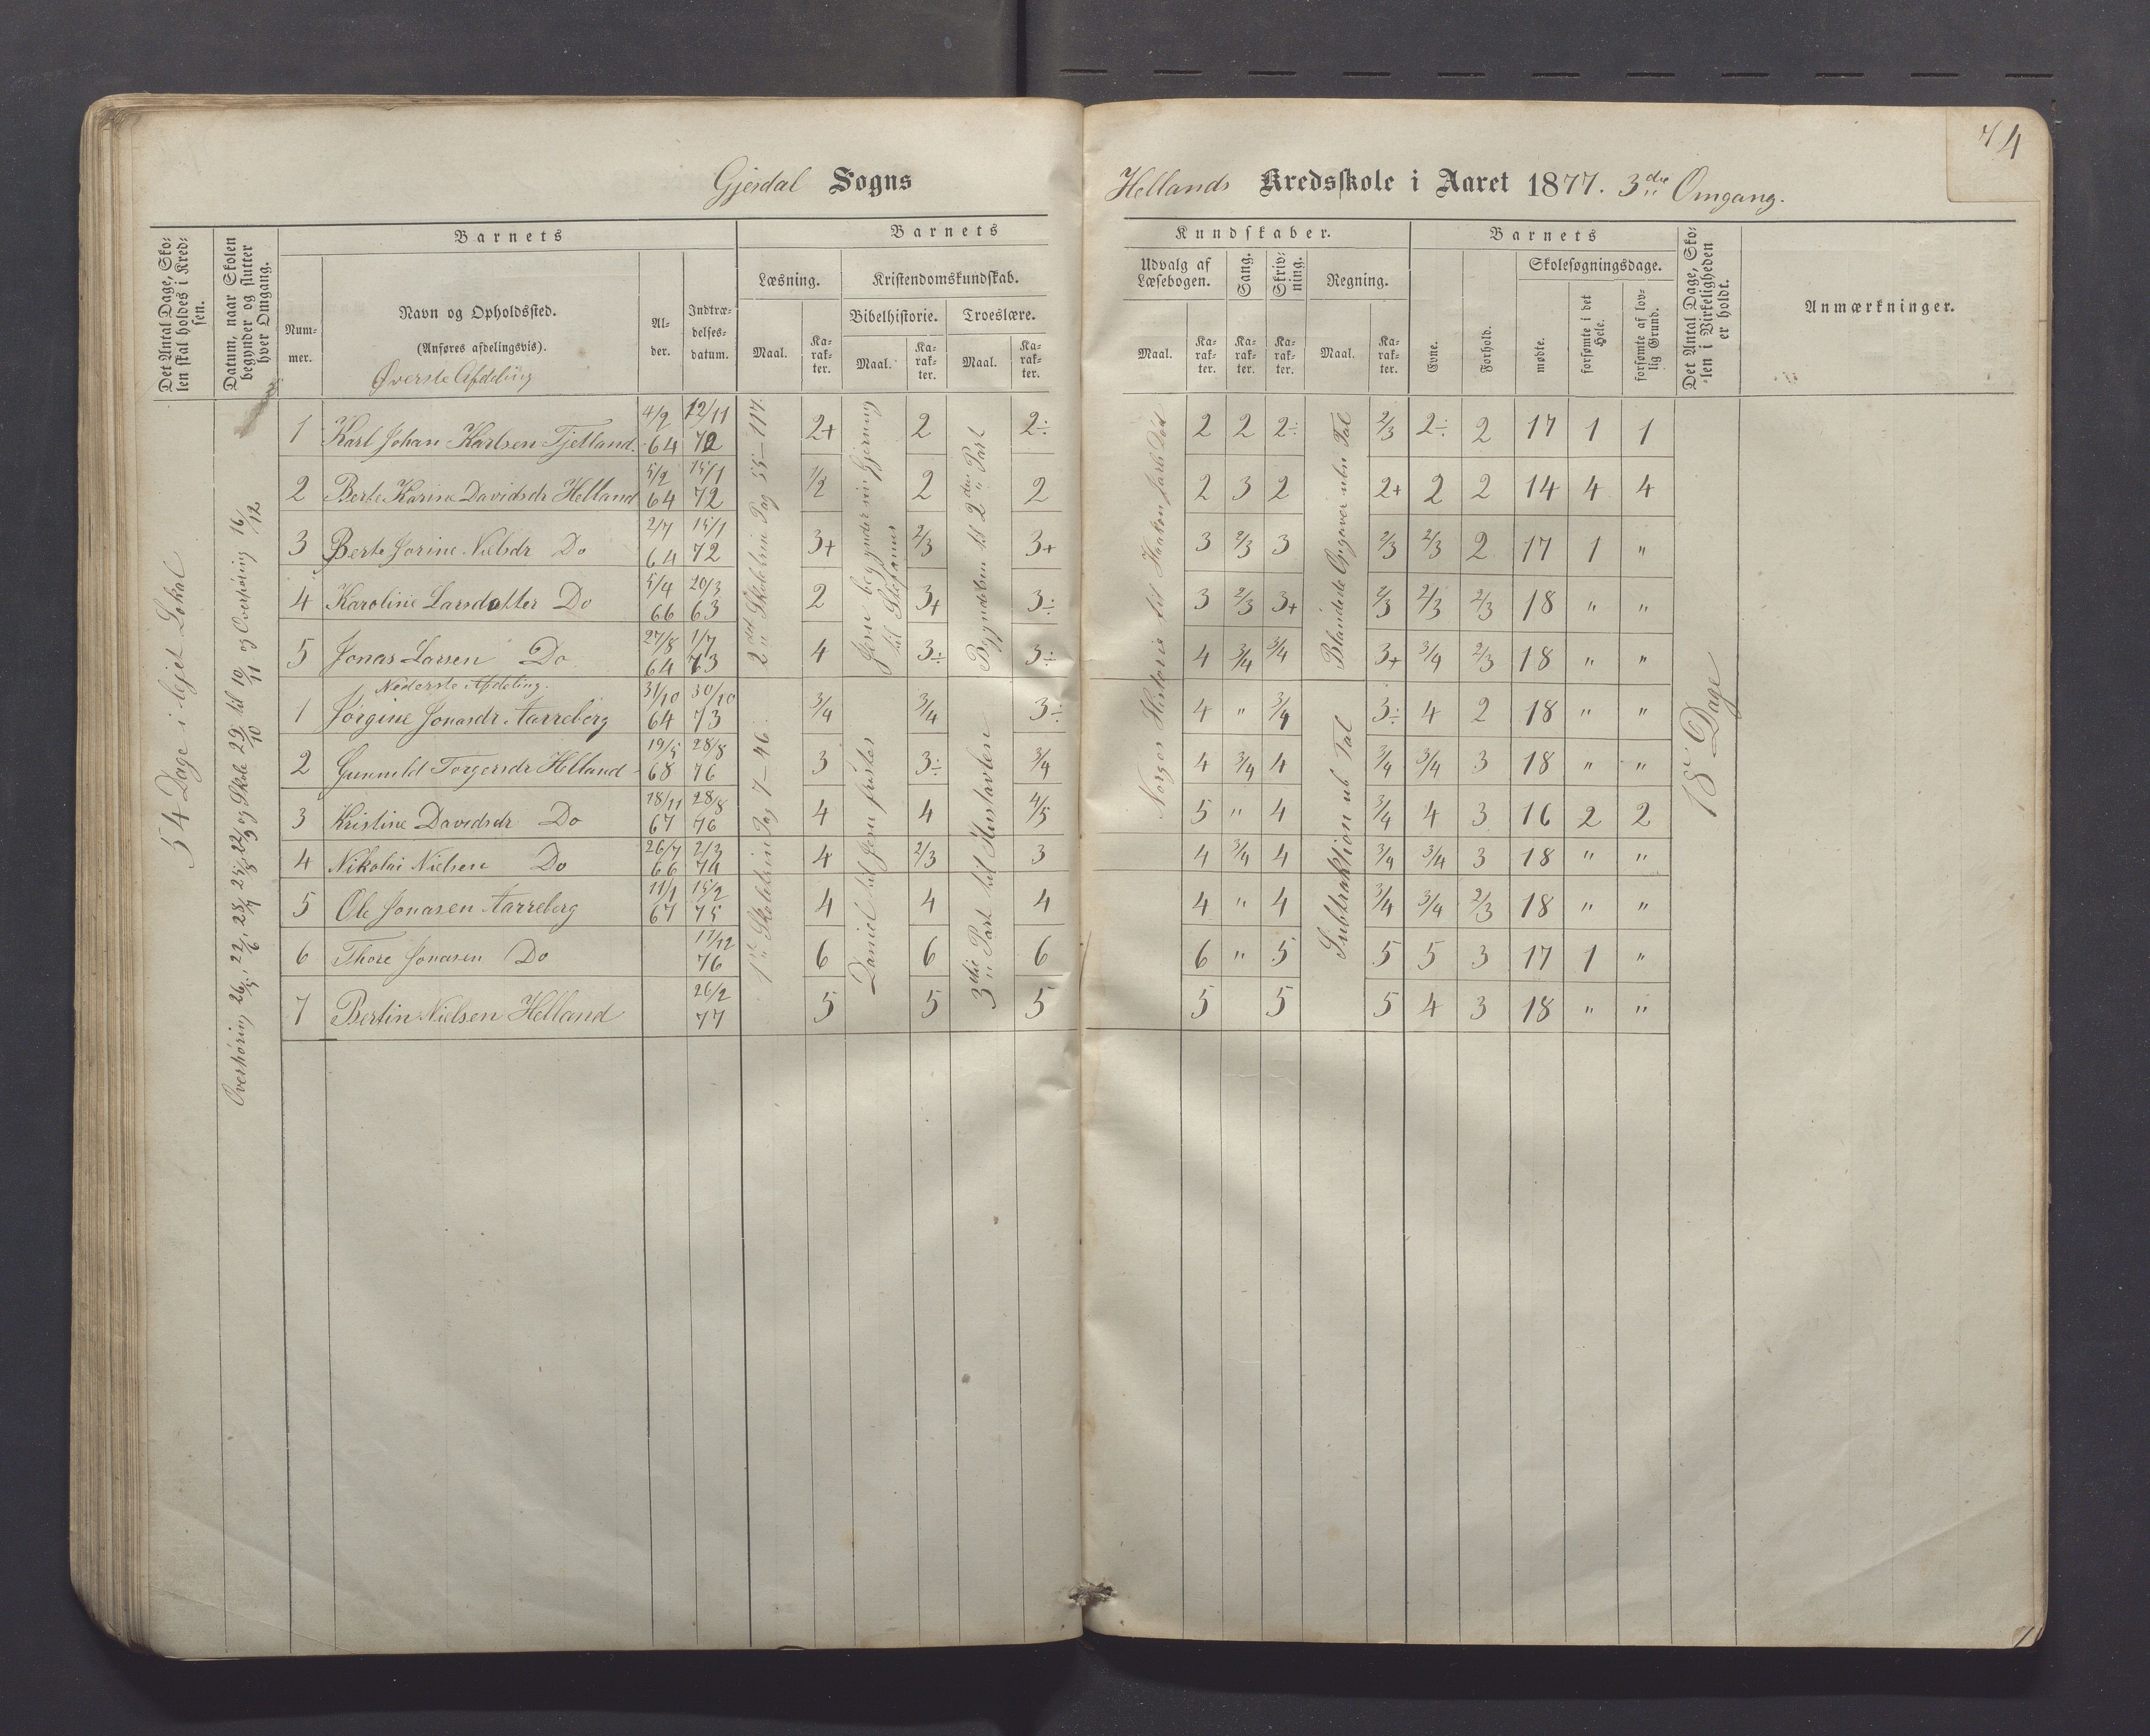 74
Gjesdal Sogns Hellands Kredsskole i Aaret 1877. 3die Omgang.
Det Antal Dage, Sko-
len skal holdes i Kred-
sen.
Datum, naar Skolen
begynder og slutter
hver Omgang.
Barnets
Num-
mer.
Navn og Opholdssted.
(Anføres afdelingsvis).
Øverste Afdeling
Al-
der.
Indtræ-
delses-
datum.
Barnets Kundskaber.
Læsning.
Maal.
Ka-
rak-
ter.
Kristendomskundskab.
Bibelhistorie.
Maal.
Ka-
rak-
ter.
Troeslære.
Maal.
Ka-
rak-
ter.
Udvalg af
Læsebogen.
Maal.
Ka-
rak-
ter.
Sang.
Ka-
rak-
ter.
Skriv-
ning.
Ka-
rak-
ter.
Regning.
Maal.
Ka-
rak-
ter.
Barnets
Evne.
Forhold.
Skolesøgningsdage.
mødte.
forsømte i det
Hele.
forsømte af lov-
lig Grund.
Det Antal Dage, Sko-
len i Virkeligheden
er holdt.
Anmærkninger.
54 Dage i lejet Lokal
Overhøring 26/5, 22/6, 28/7, 25/8, 22/9 og Skole 29/10 til 10/11 og Overhøring 16/12
2det Skoletrin Pag 55-117
Jesu begynder sin Gjerning
til Stefanus
Begyndelsen til 2den Part
Norges Historie til Haakon Jarls Død
Blandede Opgaver uben Tal
18 Dage
1 Karl Johan Karlsen Tjetland. 4/2 64 12/11 72 2+ 2 2÷ 2 2 2÷ 2/3 2÷ 2 17 1 1
2 Berte Karine Davidsdr Helland 5/2 64 15/1 72 1/2 2 2 2 3 2 2+ 2 2 14 4 4
3 Berte Jorine Nielsdr Do 2/7 64 15/1 72 3+ 2/3 3+ 3 2/3 3 2/3 2/3 2 17 1 "
4 Karoline Larsdatter Do 5/4 66 20/3 63 2 3+ 3÷ 3 2/3 3+ 2/3 2/3 2/3 18 " "
5 Jonas Larsen Do 27/8 64 1/7 73 4 3÷ 3÷ 4 3/4 3/4 3+ 3/4 2/3 18 " "
Nederste Afdeling.
1ste Skoletrin Pag 7-46.
Daniel til Jesu fristes
3die Part til Hustavlen
Subtraktion ub Tal
1 Jørgine Jonasdr Aarreberg 31/10 64 30/10 73 3/4 3/4 3÷ 4 " 3/4 3÷ 4 2 18 " "
2 Gunnild Torgersdr Helland 19/5 68 28/8 76 3 3÷ 3/4 4 3/4 4 3/4 3/4 3 18 " "
3 Kristine Davidsdr Do 18/11 67 28/8 76 4 4 4/5 5 " 4 3/4 4 3 16 2 2
4 Nikolai Nielsen Do 26/7 66 2/3 74 4 2/3 3 4 3/4 4 3/4 3/4 3 18 " "
5 Ole Jonasen Aarreberg 11/1 67 15/2 75 4 4 4 4 " 4 3/4 3/4 2/3 18 " "
6 Thore Jonasen Do 17/12 76 6 6 6 6 " 5 5 5 3 17 1 "
7 Bertin Nielsen Helland 26/2 77 5 5 5 5 5 5 4 3 18 " "